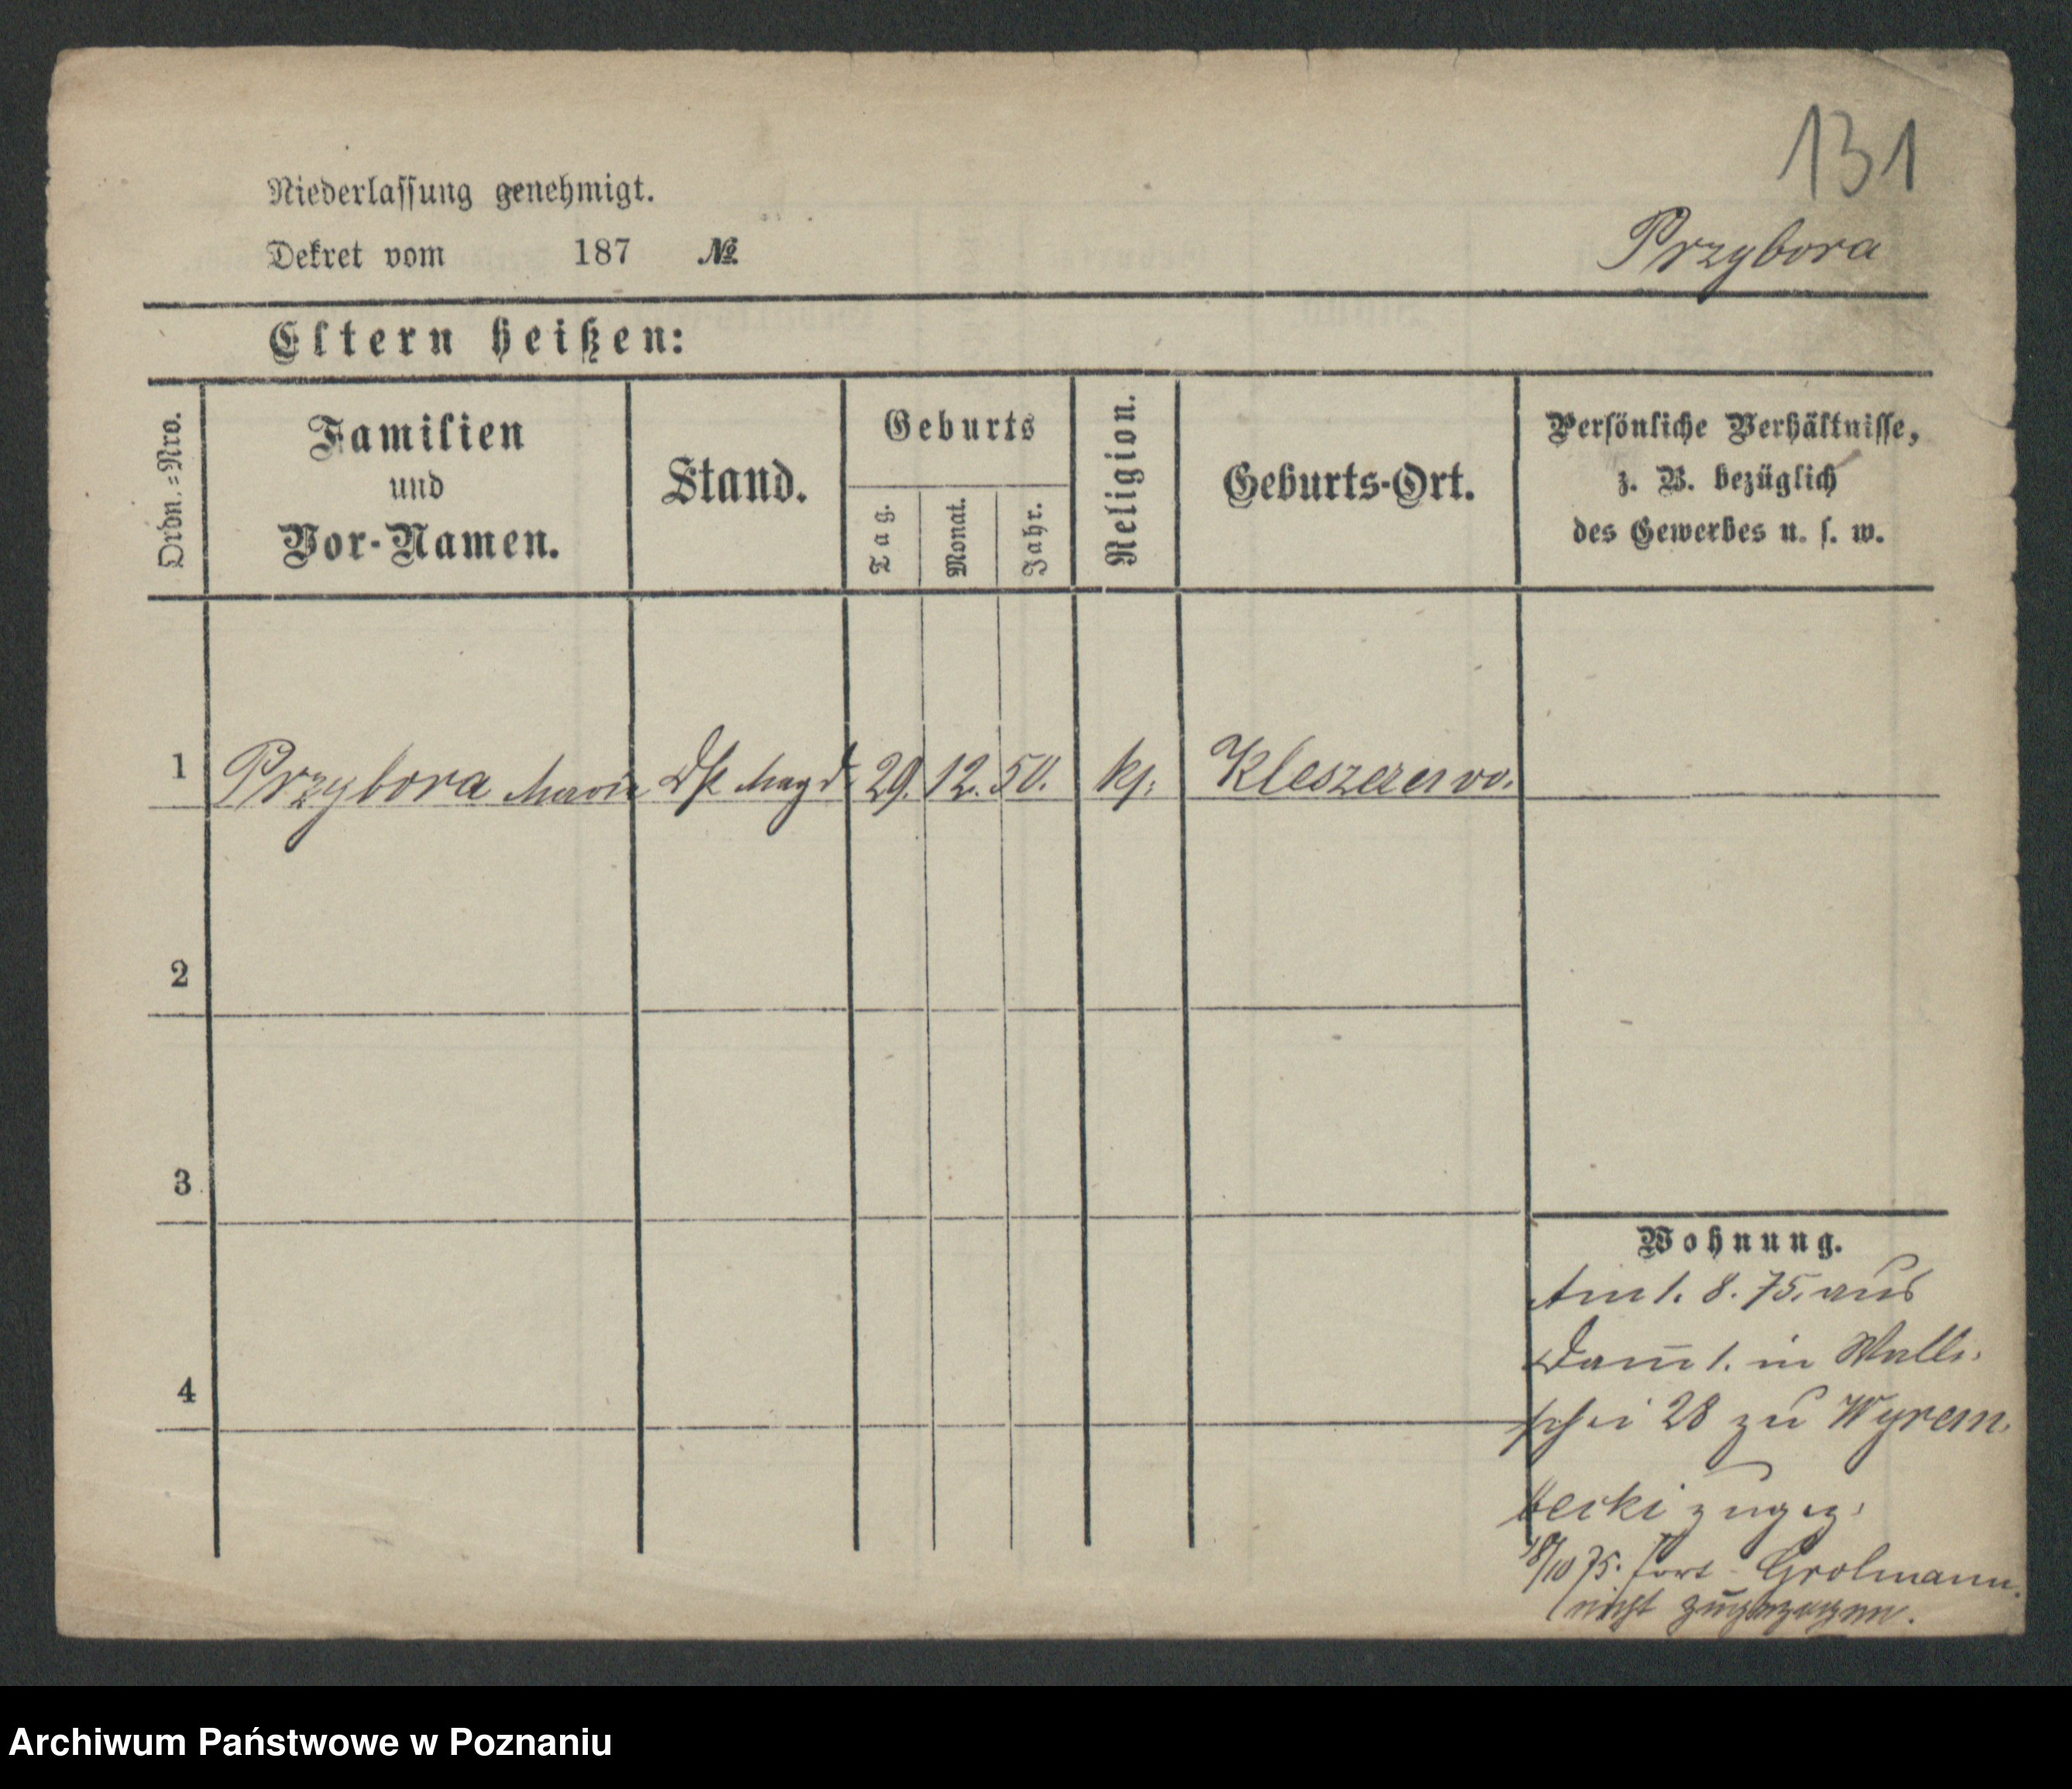 131
Niederlassung genehmigt.
Dekret vom 187 №
Przybora
Eltern heißen:
Ordn.=Nro.
Familien
und
Vor-Namen.
Stand.
Geburts
Tag.
Monat.
Jahr.
Religion.
Geburts-Ort.
Persönliche Verhältnisse,
z. B. bezüglich
des Gewerbes u. s. w.
1 Przybora Maria Magd 29. 12. 50. kf.
2
3
4
Wohnung.
Am 1. 8. 75. aus
1. in Walli-
schei 28 zu Wyrem-
becki zugez.
18/10 75. fort Grolmann
nicht zugezogen.
Archiwum Państwowe w Poznaniu